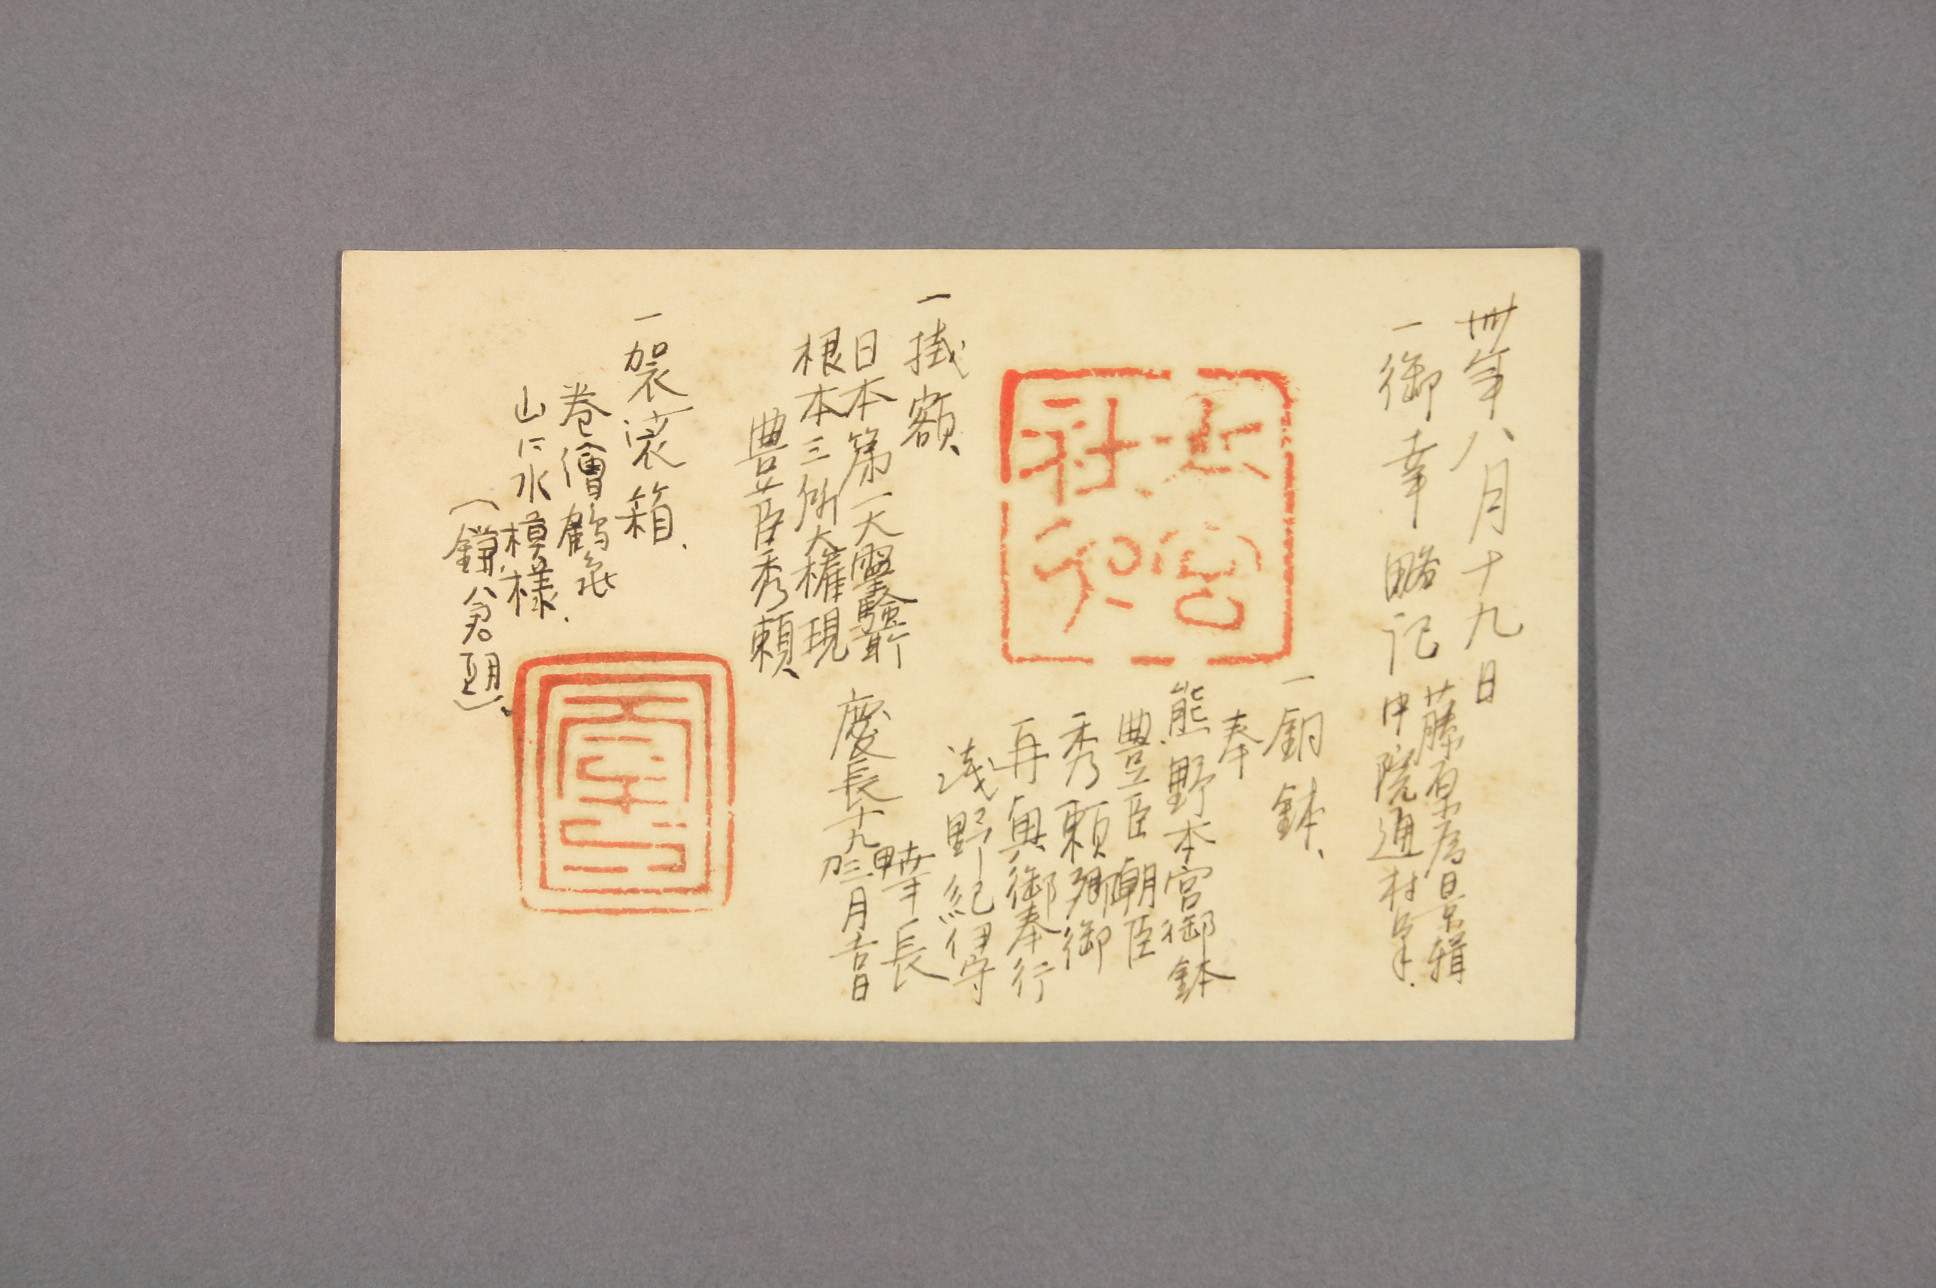 卅年八月十九日
一御幸略記
藤原為景輯
中院通村筆.
一銅鉢、
奉
熊野本宮御鉢
豊臣朝臣
秀頼卿御
再興御奉行
浅野紀伊守
長
一掛額、
日本第一大霊験所
根本三所大権現
豊臣秀頼、
慶長十九
三月吉日
一袈裟箱、
巻繪鶴亀
山に水模様.
(鎌倉朝)